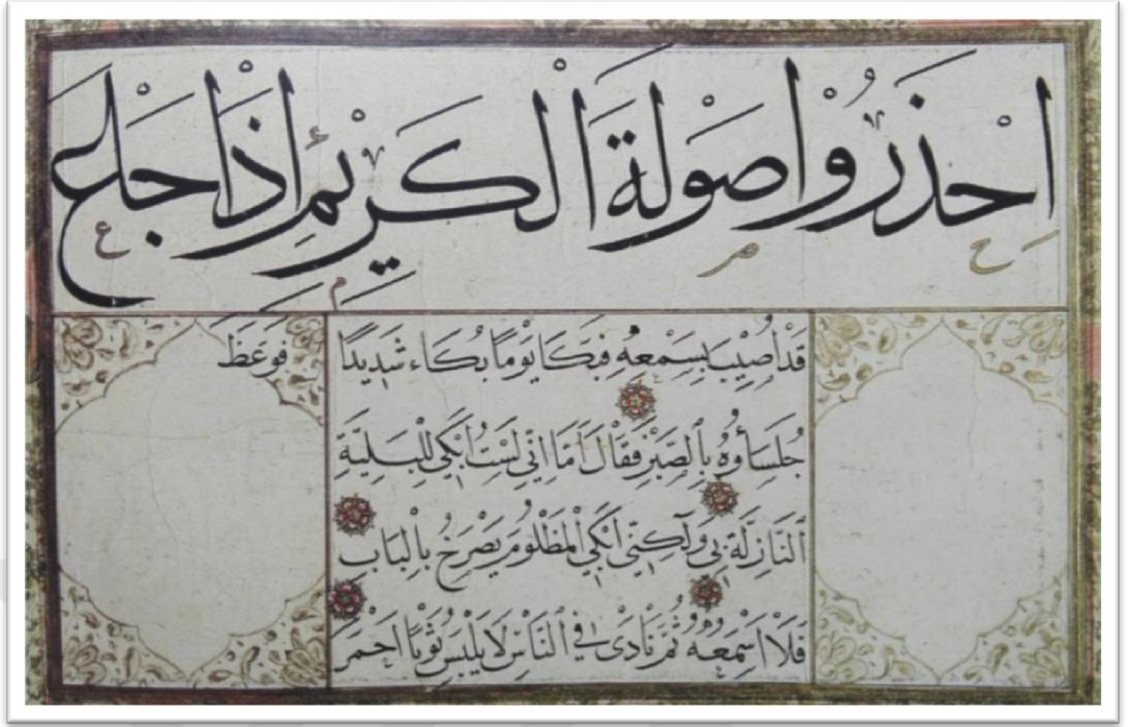 احْذَرُوْا صَوْلَةَ الْكَرِيْمِ اِذَا جَاعَ
قَدْ اُصِيْبَ بِسَمْعِهِ فَبَكَا يَوْمًا بُكَاء شَدِيْدًا فَوَعَظَ
جُلَسَاؤُهُ بِالصَّبْرِ فَقَالَ اَمَا اِنِّي لَسْتُ اَبْكِي لِلْبَلِيَّةِ
النَّازِلَةِ بِي وَلَكِنِّي اَبْكِي الْمَظْلُومَ يَصْرَخُ بِالْبَابِ
فَلَا اَسْمَعُهُ ثُمَّ نَادَى فِي النَّاسِ لَا يَلْبَسْ ثَوْبًا اَحْمَرَ